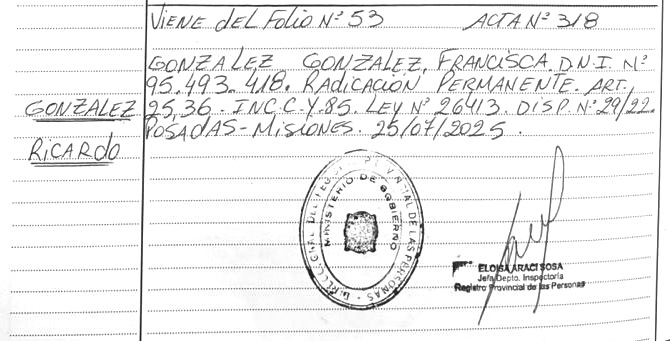 VIENE DEL FOLIO Nº 53 ACTA Nº 318
GONZALEZ GONZALEZ, FRANCISCA. D.N.I. Nº
95.493.418. RADICACIÓN PERMANENTE. ART.
GONZALEZ 25,36. INC.C.Y.85. LEY Nº 26413. DISP.Nº29/22.
POSADAS-MISIONES. 25/07/2025.
RICARDO
PROVINCIAL DE LAS PERSONAS
MINISTERIO DE GOBIERNO
ELOISA ARACI SOSA
Jefa Depto. Inspectoría
Registro Provincial de las Personas